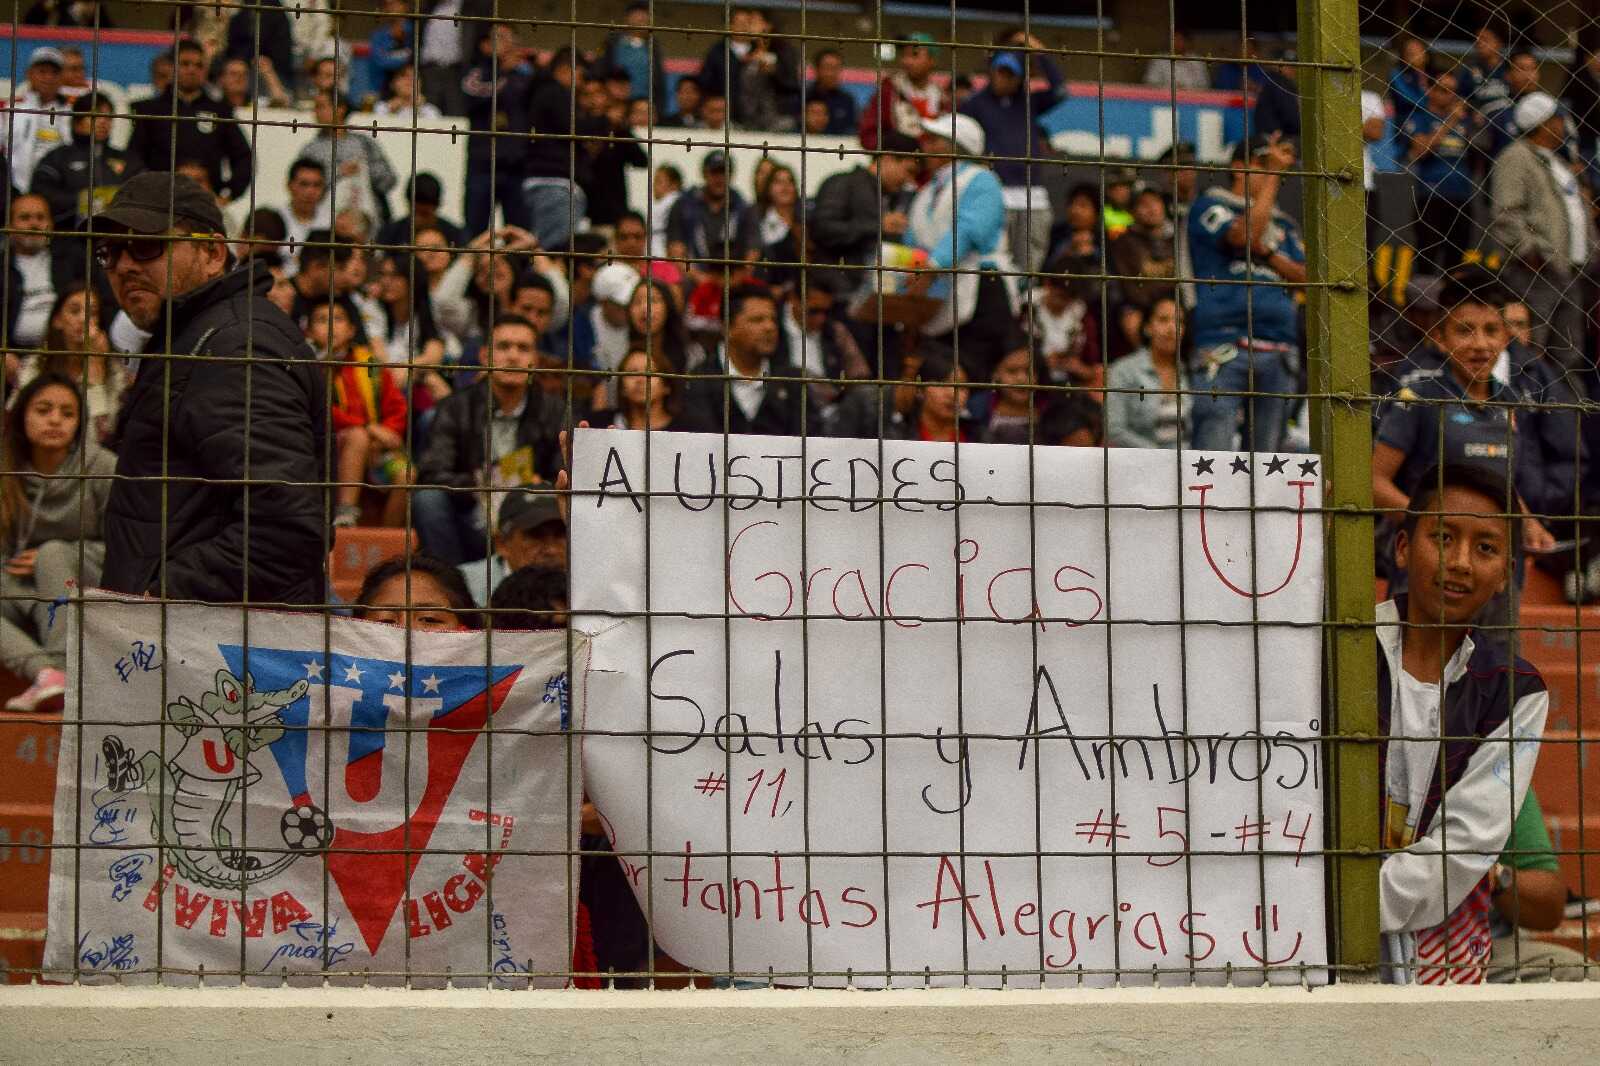 A USTEDES:
U
Gracias
Salas y Ambrosi
#11,
#5-#4
Por tantas Alegrias
U
U
¡VIVA LIGA!